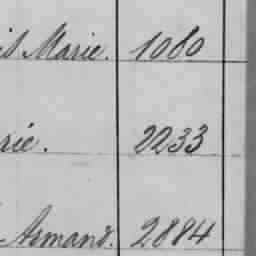 Marie. 1080
rie. 2233
Armand. 2884